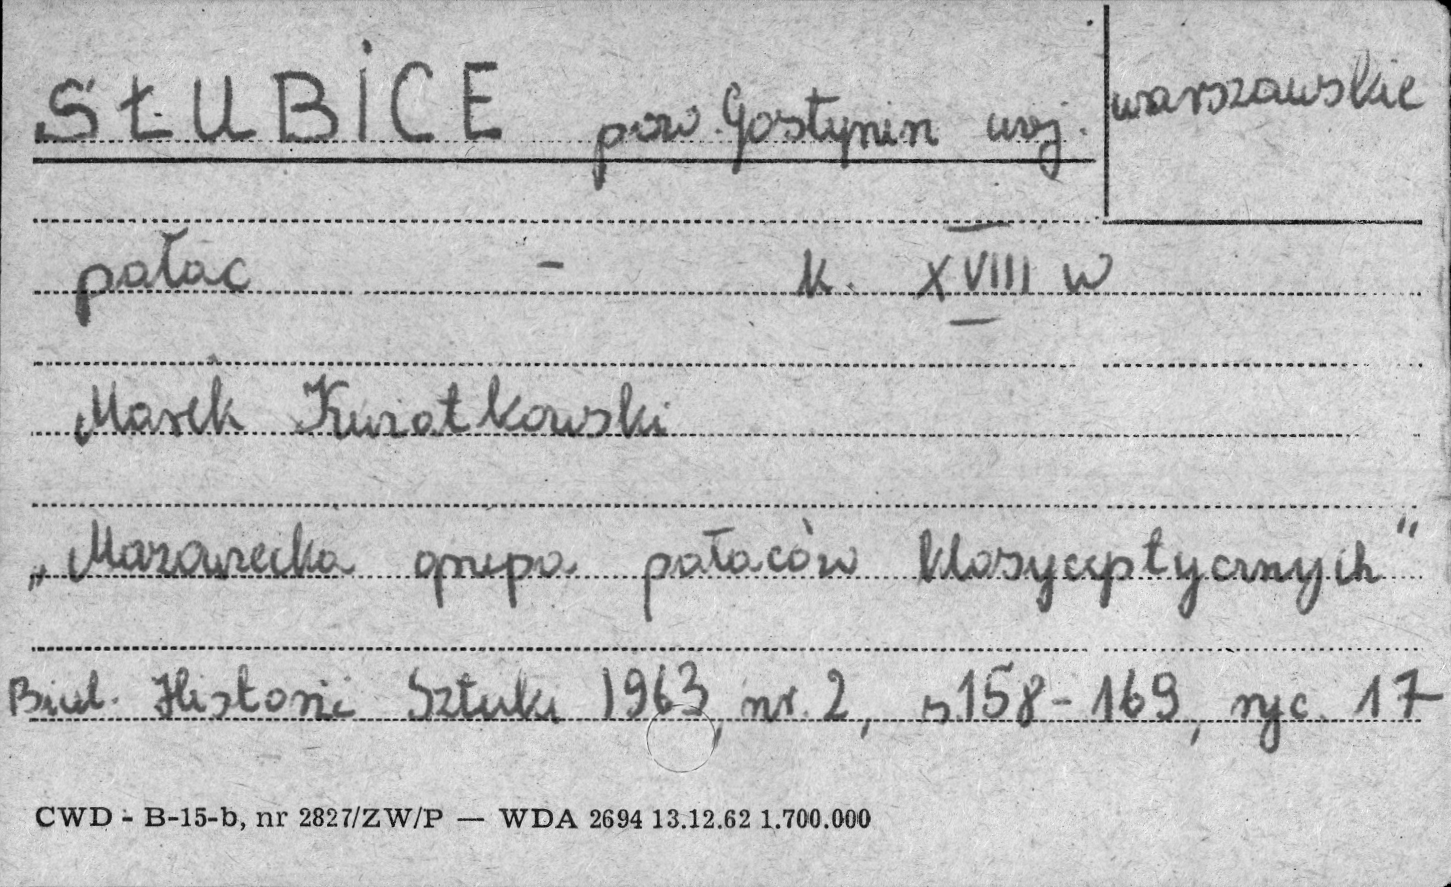 SŁUBICE pow. Gostynin woj. warszawskie
pałac - k. XVIII w
Marek Kwiatkowski
„Mazowiecka grupa pałaców klasycystycznych"
Biul. Historii Sztuki 1963, nr. 2, s. 158-169, ryc. 17
CWD - B-15-b, nr 2827/ZW/P — WDA 2694 13.12.62 1.700.000